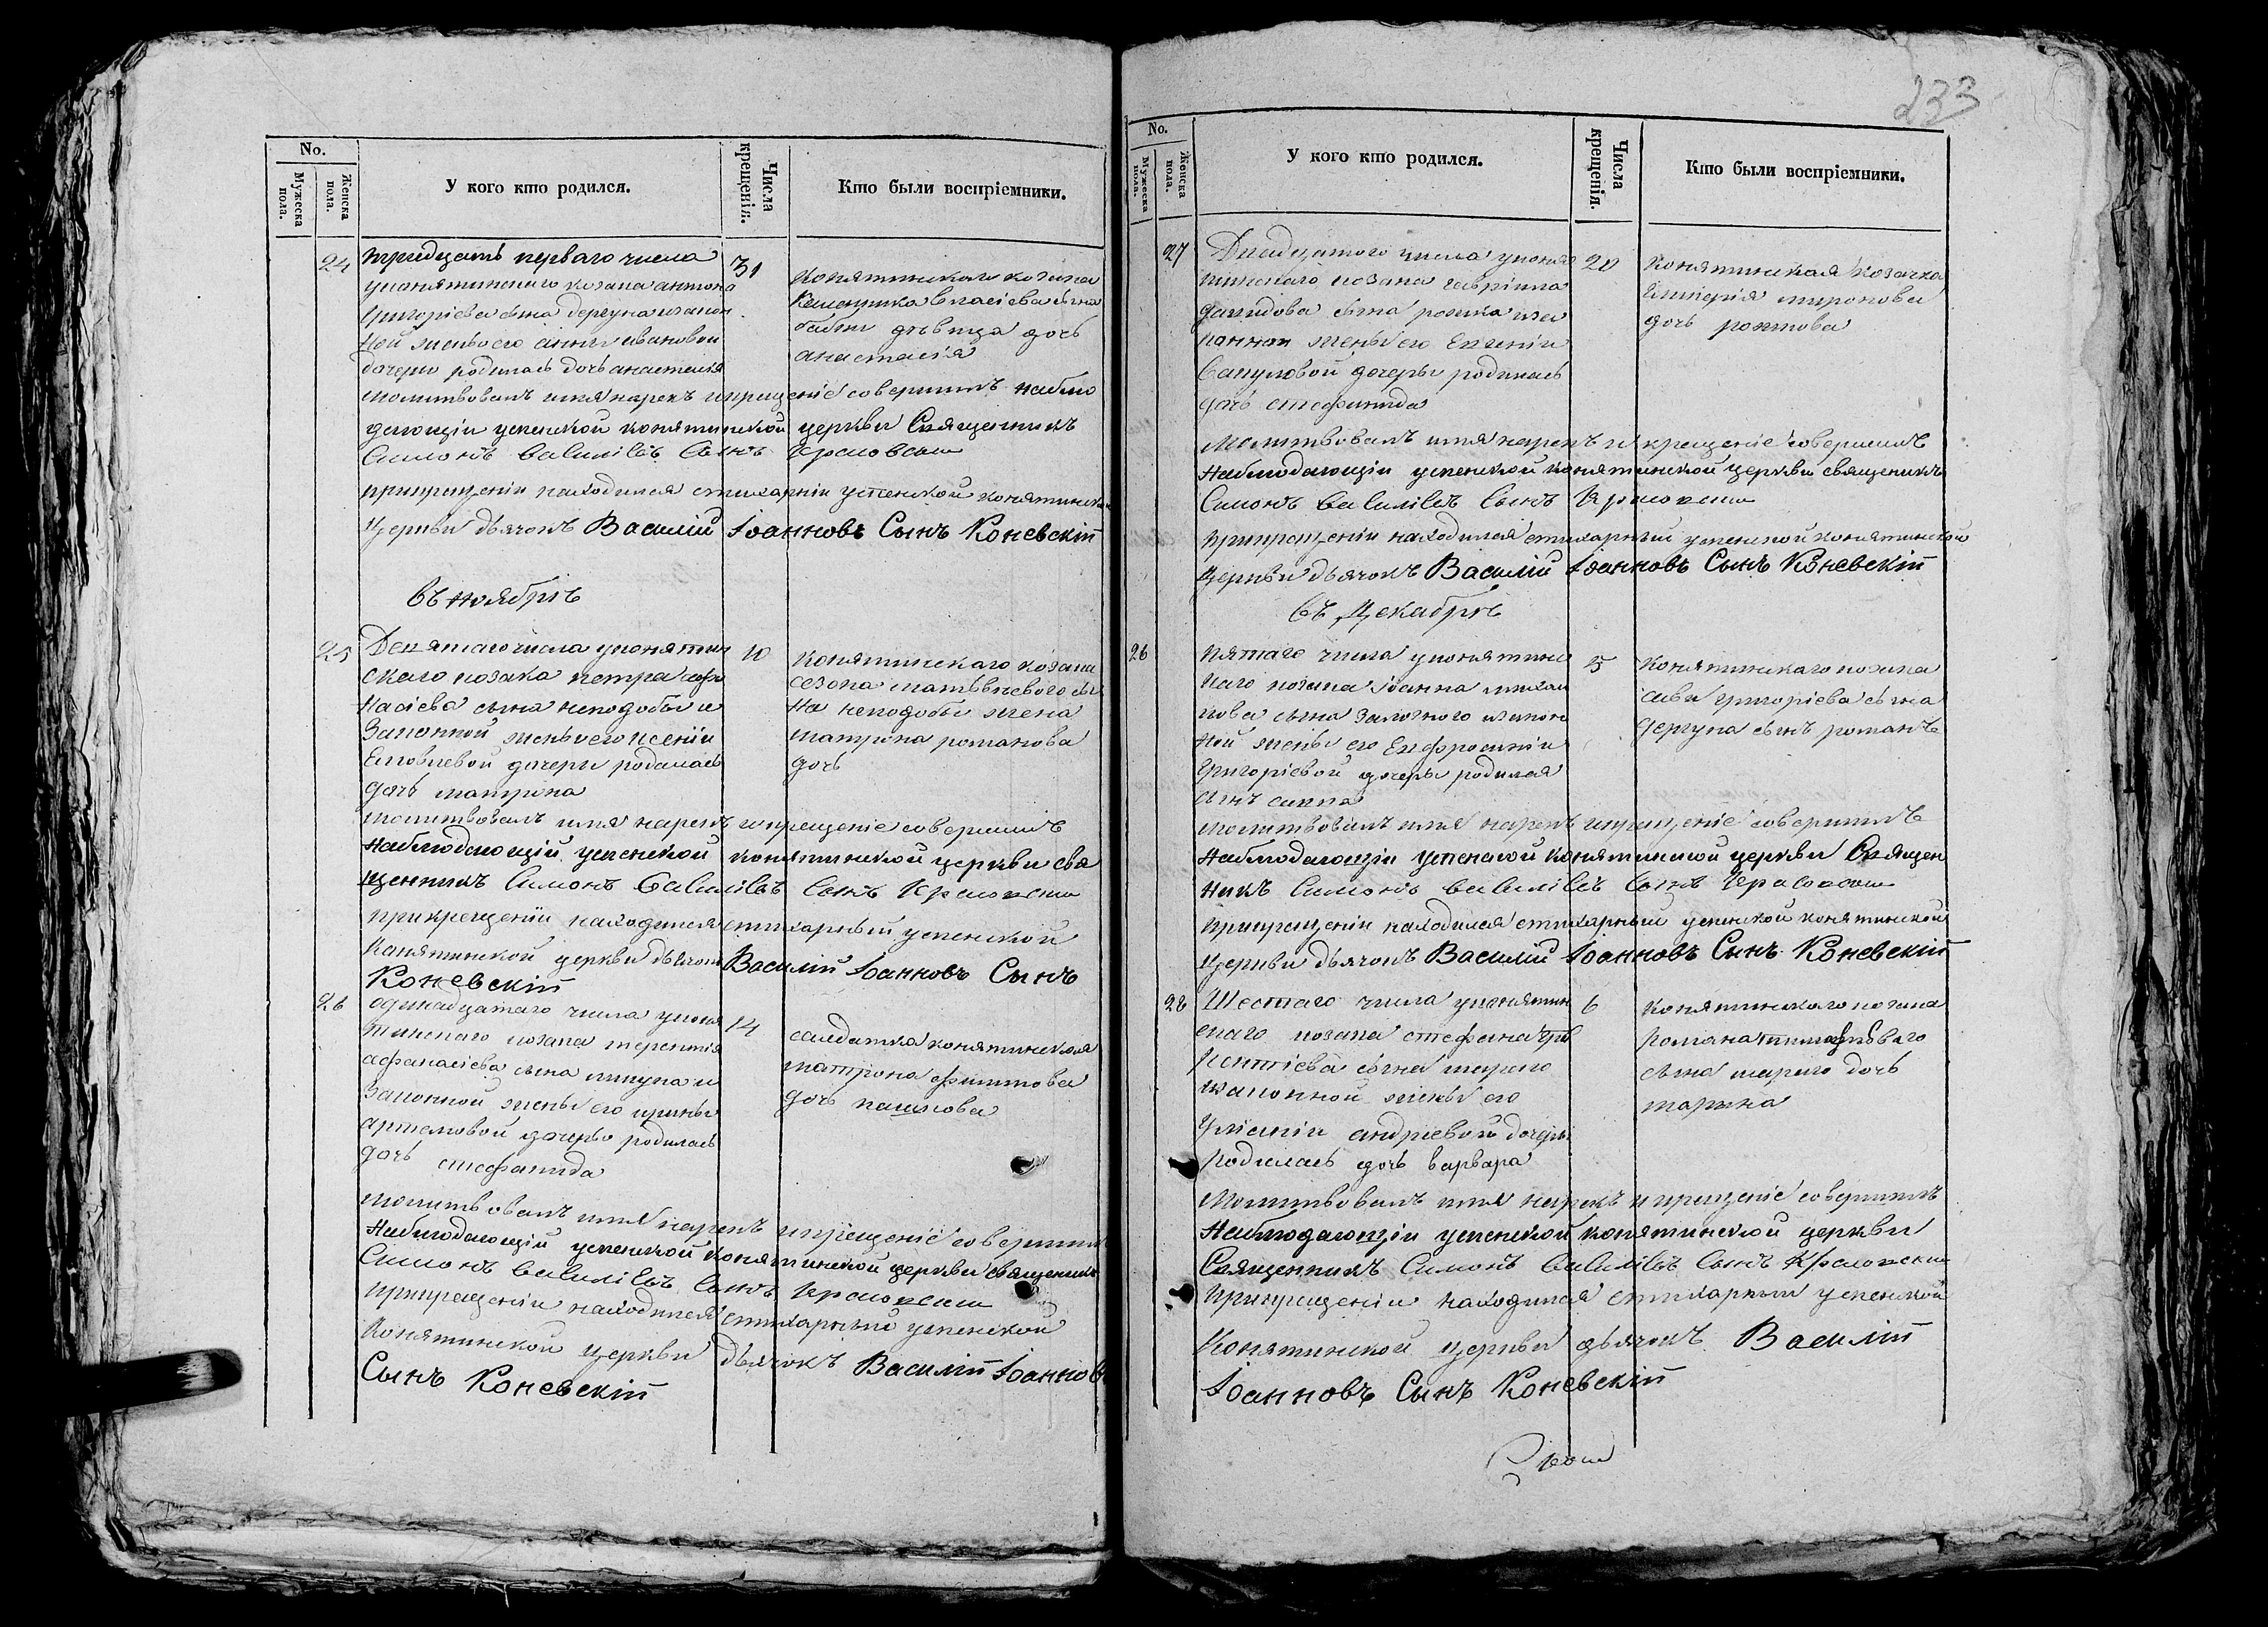 233
No.
Мужеска пола.
Женска пола.
У кого кто родился.
Числа крещенія.
Кто были воспріемники.
24
тридцать перваго числа
уконятинского козака антона
григоріева сына дергуна изакон
ной жены его анны ивановой
дочери родилась дочь анастасія
31
конятинскаго козака
власіева сына
бабы дѣвица дочь
анастасія
молитвовалъ имя нарекъ икрещеніе совершилъ наблю
дающіи успенской конятинской церкви Священникъ
Симонъ василіевъ Сынъ
прикрещеніи находился стихарніи успенской конятинской
Церкви дьячокъ Василій Іоанновъ Сынъ Коневскій
въ ноябрѣ
25
Девятаго числа уконятин
скаго козака петра афа
насіева сына неподобы и
Законной жены его ксеніи
Яковлевой дочери родилась
дочь матрона
10
конятинскаго козака
созона матвѣевого сы
на неподобы жена
матрона романова
дочь
молитвовалъ имя нарекъ икрещеніе совершилъ
Наблюдающій успенской конятинской церкви свя
щенникъ Симонъ василіевъ Сынъ
прикрещеніи находился стихарный успенской
Конятинской церкви дьячокъ Василій Іоанновъ Сынъ
Коневскій
26
одинадцатаго числа уконя
тинского козака терентія
афанасіева сына и
Законной жены его ирины
артемовой дочеръ родилась
дочь стефанида
14
салдатка конятинская
матрона филипова
дочь
молитвовалъ имя нарекъ икрещеніе совершилъ
Наблюдающій успенской конятинской церкви священникъ
Симонъ василіевъ Сынъ
прикрещеніи находился стихарный успенской
Конятинской церкви дьячокъ Василій Іоанновъ
Сынъ Коневскій
No.
Мужеска пола.
Женска пола.
У кого кто родился.
Числа крещенія.
Кто были воспріемники.
27
Двадцатого числа уконя
тинского козака гавріила
давидова сына изa
конной жены его Евгеніи
дочеры родилась
дочь стефанида
20
Конятинская козачка
Гликерія миронова
дочь
Молитвовалъ имя нарекъ и крещеніе совершилъ
Наблюдающіи успенской конятинской церкви священникъ
Симонъ василіевъ Сынъ
прикрещеніи находился стихарный успенской конятинской
Церкви дьячокъ Василій Іоанновъ Сынъ Коневскій
въ Декабрѣ
26
Пятаго числа уконятинс
каго козака Іоанна михаи
лова сына изакон
ной жены его Евфросиніи
Григоріевой дочеры родился
сынъ савва
5
Конятинскаго козака
савы григоріева сына
дергуна сынъ романъ
молитвовалъ имя нарекъ икрещеніе совершилъ
Наблюдающіи успенской конятинской церкви Священ
никъ Симонъ василіевъ Сынъ
прикрещеніи находился стихарный успенской конятинской
Церкви дьячокъ Василій Іоанновъ Сынъ Коневскій
28
Шестаго числа уконятин
скаго козака стефана
сына
изаконной жены его
Уліаніи андріевой дочеры
Родилась дочь варвара
6
Конятинскаго козака
Романа
сына дочь
марина
Молитвовалъ имя нарекъ и крещеніе совершилъ
Наблюдающіи успенской конятинской церкви
Священникъ Симонъ василіевъ Сынъ
Прикрещеніи находился стихарный успенской
Конятинской церкви дьячокъ Василій
Іоанновъ Сынъ Коневскій